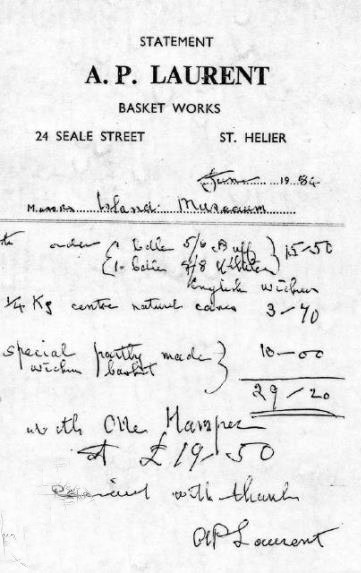 STATEMENT
A. P. LAURENT
BASKET WORKS
24 SEALE STREET ST. HELIER
June 1984
Messrs Island Museum
to order 1 bolte 5/6 Buff } 15-50
1 bolte 8/8 White
English wicker
1/4 Kg centre natural canes 3-70
special partly made } 10-00
wicker basket
29/20
with One Hamper
At £19-50
Received with thanks
A P Laurent